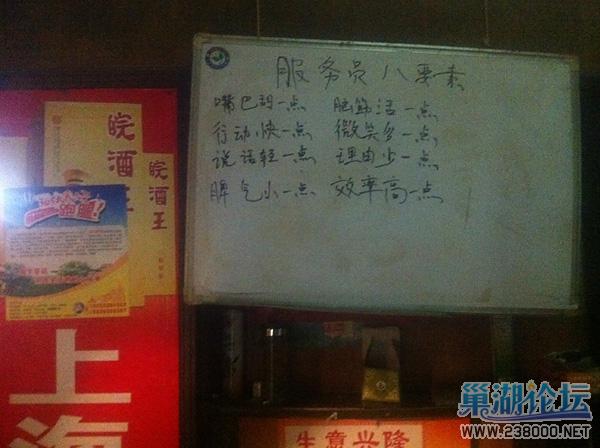 服务员八要素
嘴巴甜一点 脑筋活一点
行动快一点 微笑多一点
说话轻一点 理由少一点
脾气小一点 效率高一点
皖酒王
皖酒王
上海
生意兴隆
巢湖论坛
www.238000.NET